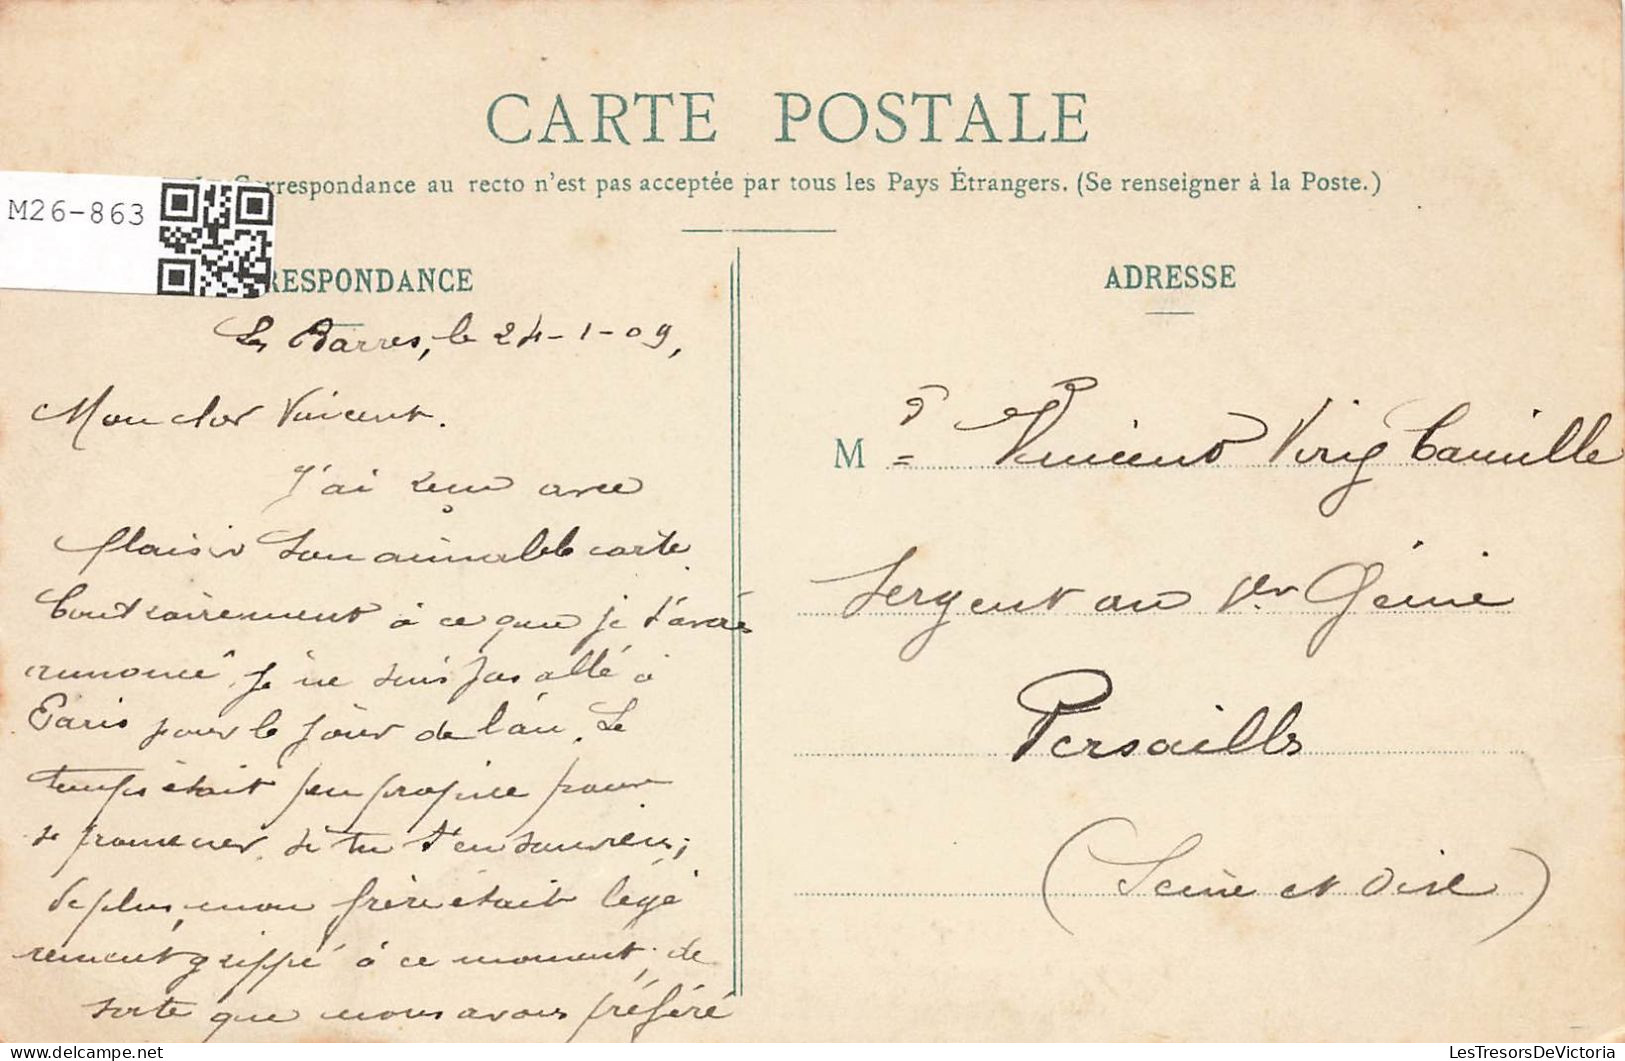 CARTE POSTALE
Correspondance au recto n'est pas acceptée par tous les Pays Étrangers. (Se renseigner à la Poste.)
M26-863
RESPONDANCE
Les Barres, le 24-1-09,
Mon cher Vincent.
J'ai reçu avec
plaisir ton aimable carte.
Contrairement à ce que je t'avais
annoncé, je ne suis pas allé à
Paris pour le jour de l'an. Le
temps était peu propice pour
se promener, si tu t'en souviens;
de plus, mon frère était légè
rement grippé à ce moment; de
sorte que nous avons préféré
ADRESSE
M r Vincent Camille
Sergent au 1er Génie
Versailles
(Seine et Oise)
LesTresorsDeVictoria